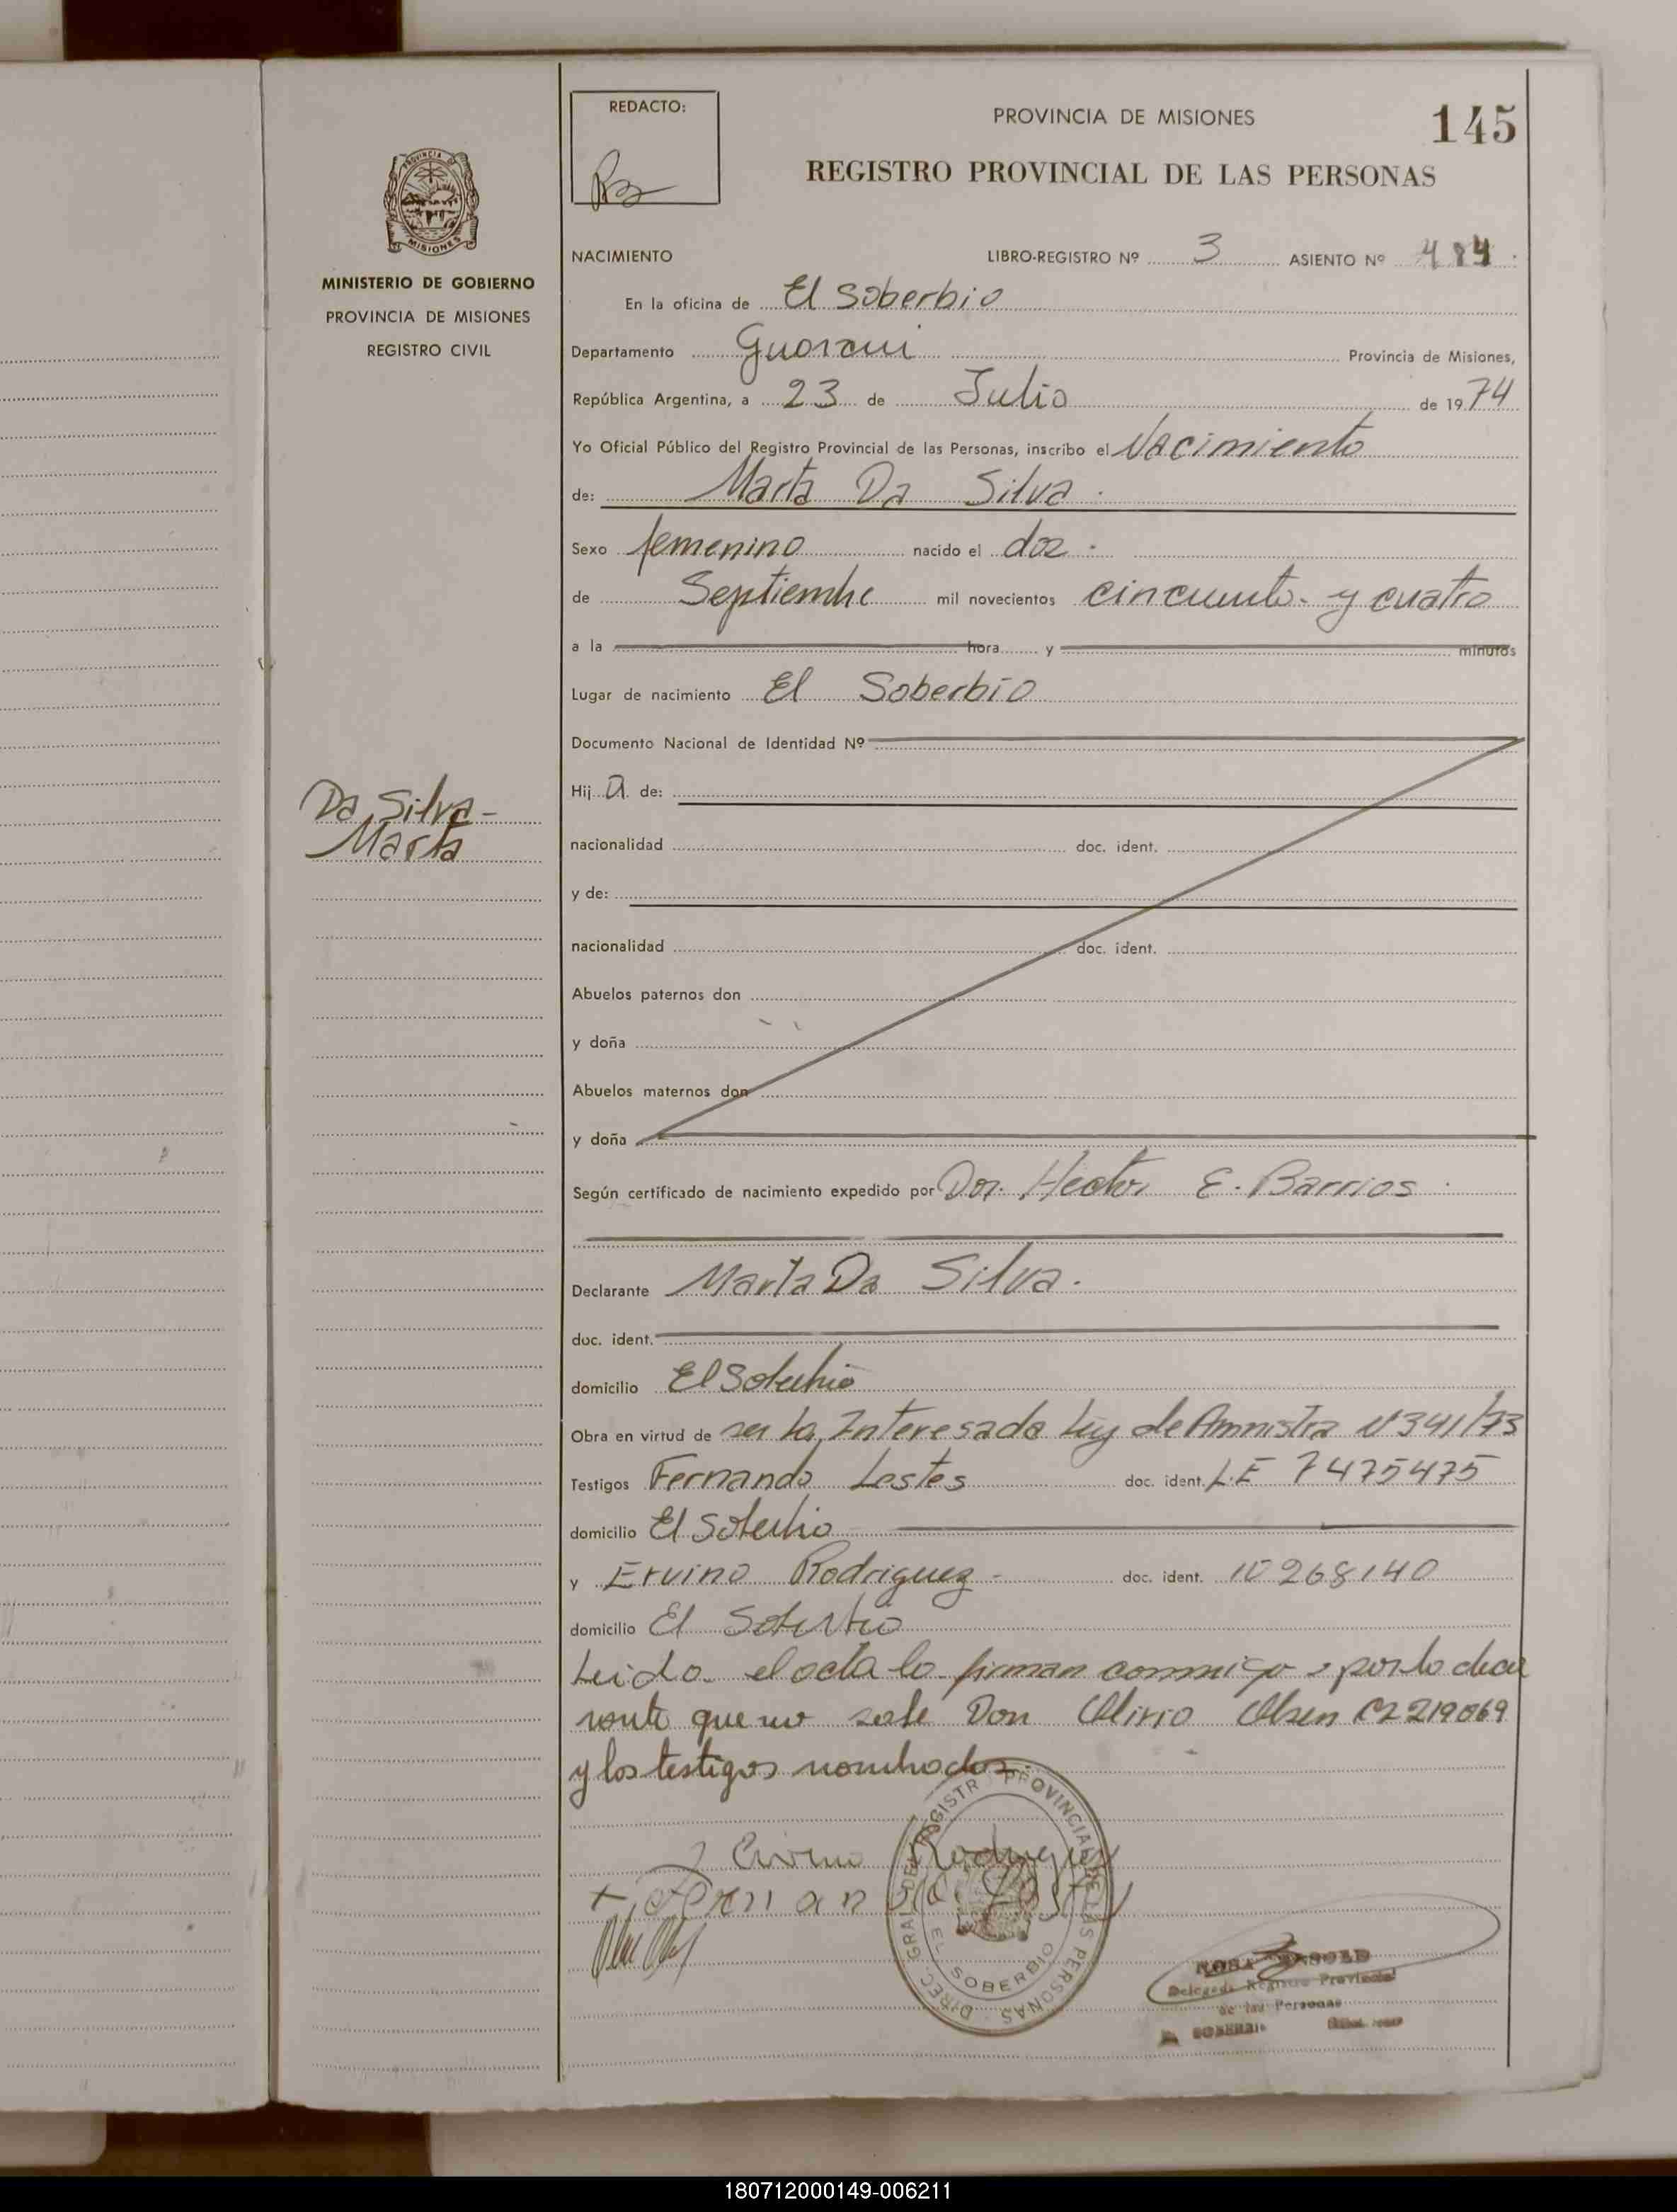 REDACTO:
PROVINCIA DE MISIONES
145
REGISTRO PROVINCIAL DE LAS PERSONAS
PROVINCIA DE
MISIONES
MINISTERIO DE GOBIERNO
PROVINCIA DE MISIONES
REGISTRO CIVIL
NACIMIENTO LIBRO-REGISTRO Nº 3 ASIENTO Nº 484
En la oficina de El Soberbio
Departamento Guarani Provincia de Misiones,
República Argentina, a 23 de Julio de 1974
Yo Oficial Público del Registro Provincial de las Personas, inscribo el Nacimiento
de: Marta Da Silva.
Sexo femenino nacido el dos.
de Septiembre mil novecientos cincuenta y cuatro
a la hora y minutos
Lugar de nacimiento El Soberbio
Documento Nacional de Identidad Nº
Hij a de:
Da Silva-
Marta
nacionalidad doc. ident.
y de:
nacionalidad doc. ident.
Abuelos paternos don
y doña
Abuelos maternos don
y doña
Según certificado de nacimiento expedido por Dor. Hector E. Barrios.
Declarante Marta Da Silva.
doc. ident.
domicilio El Soberbio
Obra en virtud de ser la Interesada Ley de Amnistia Nº 341/73
Testigos Fernando Lestes doc. ident. L.E 7475475
domicilio El Soberbio
y Ervino Rodriguez - doc. ident. 10268140
domicilio El Soberbio
Leida el acta la firman conmigo, por la decla
rante que no sabe Don Olirio Olsen 219069
y los testigos nombrados.
Ervino Rodriguez
DIREC. GRAL. DEL REGISTR PROVINCIAL DE LAS PERSONAS
EL SOBERBIO
ROSA
Delegada Registro Provincial
de las Personas
SOBERBIO
180712000149-006211